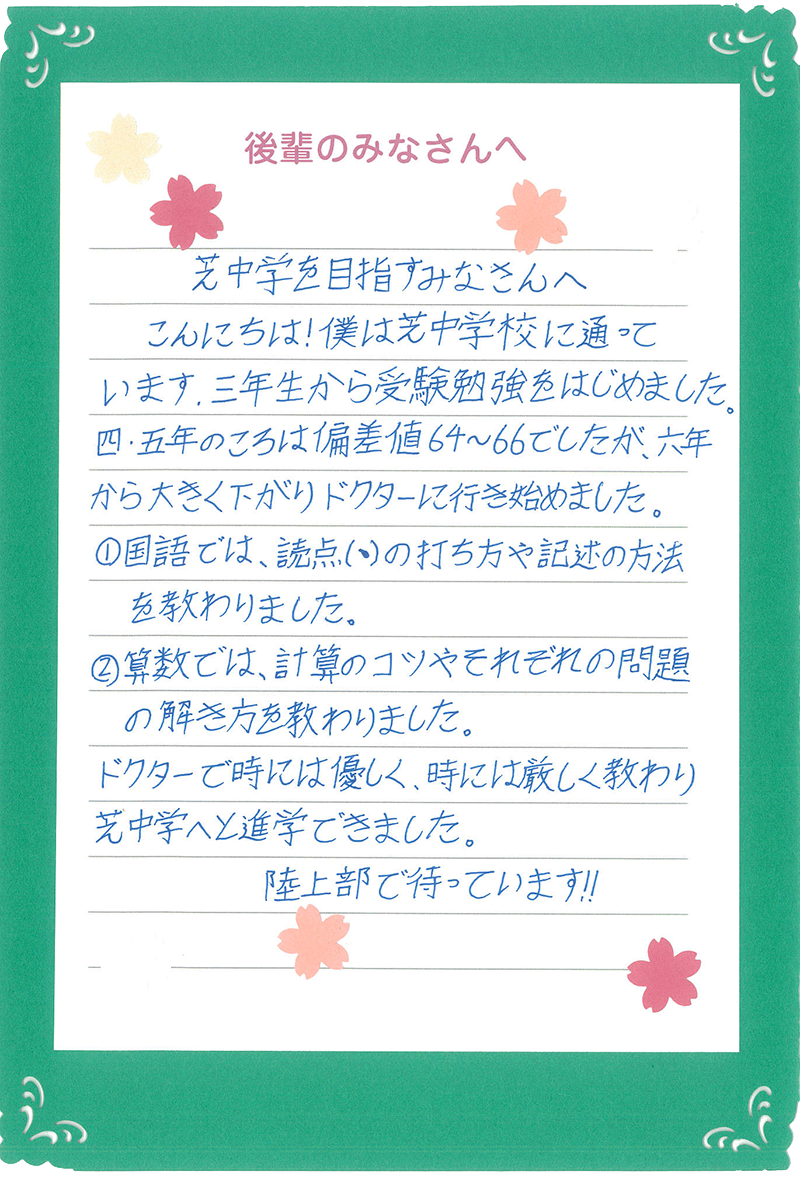 後輩のみなさんへ
芝中学を目指すみなさんへ
こんにちは!僕は芝中学校に通って
います.三年生から受験勉強をはじめました。
四・五年のころは偏差値64〜66でしたが、六年
から大きく下がりドクターに行き始めました。
①国語では、読点(、)の打ち方や記述の方法
を教わりました。
②算数では、計算のコツやそれぞれの問題
の解き方を教わりました。
ドクターで時には優しく、時には厳しく教わり
芝中学へと進学できました。
陸上部で待っています!!